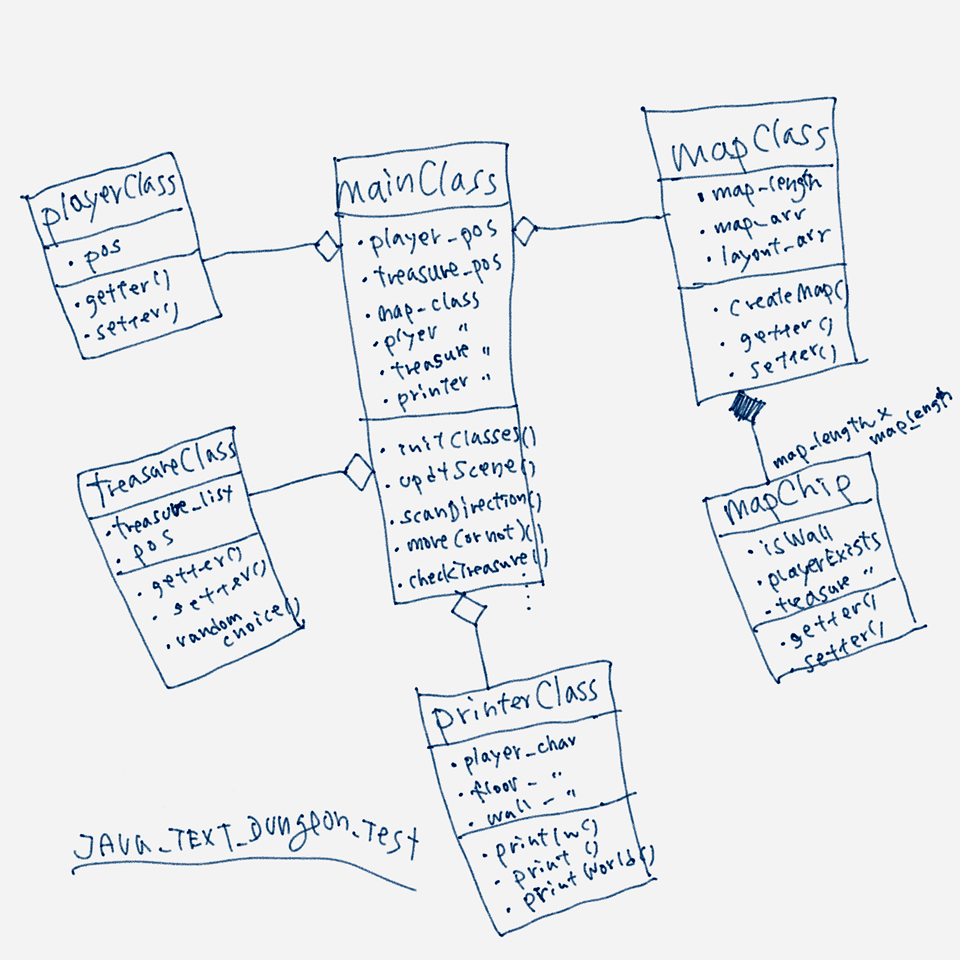 playerClass
・pos
・getter()
・setter()
mainClass
・player_pos
・treasure_pos
・map_class
・plyer 〃
・treasure 〃
・printer 〃
・initClasses()
・updtScene()
・scanDirection()
・move(or not)()
・checkTreasure()
⋮
mapClass
・map_length
・map_arr
・layout_arr
・createMap()
・getter()
・setter()
map_length×
map_length
mapChip
・isWall
・playerExists
・treasure 〃
・getter()
・setter()
treasureClass
・treasure_list
・pos
・getter()
・setter()
・random
choice()
printerClass
・player_char
・floor_ 〃
・wall_ 〃
・println()
・print()
・printWorld()
JAVA_TEXT_Dungeon_Test